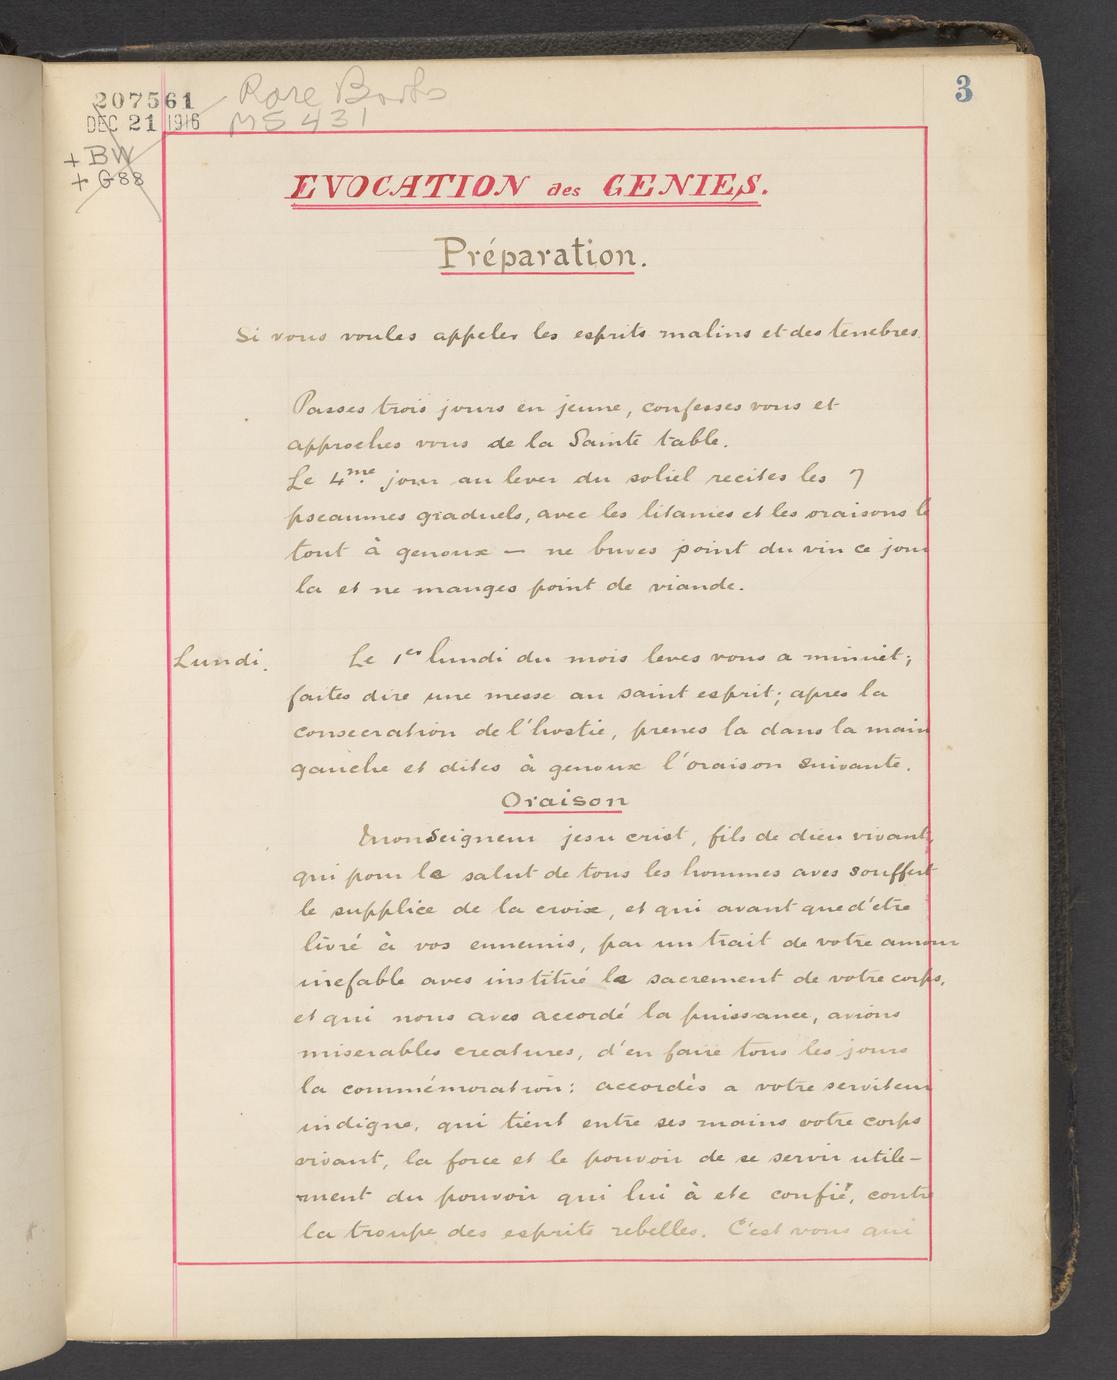 207561
DEC 21 1916
Rare Books
MS 431
+ BW
+ G88
3
EVOCATION des GENIES.
Préparation.
Si vous voules appeler les esprits malins et des tenebres
Passes trois jours en jeune, confesses vous et
approches vous de la Sainte table.
Le 4me. jour au lever du soliel recites les 7
pseaumes graduels, avec les litanies et les oraisons le
tout à genoux — ne buves point du vin ce jour
la et ne manges point de viande.
Lundi.
Le 1er lundi du mois leves vous a minuet;
faites dire une messe au saint esprit; apres la
consecration de l'hostie, prenes la dans la main
gauche et dites à genoux l'oraison suivante.
Oraison
MonSeigneur jesu crist, fils de dieu vivant,
qui pour le salut de tous les hommes aves souffert
le supplice de la croix, et qui avant que d'etre
livré à vos ennemis, par un trait de votre amour
inefable aves institué le sacrement de votre corps,
et qui nous aves accordé la puissance, avions
miserables creatures, d'en faire tous les jours
la commémoration: accordès a votre serviteur
indigne, qui tient entre ses mains votre corps
vivant, la force et le pouvoir de se servir utile-
ment du pouvoir qui lui à ete confié, contre
la troupe des esprits rebelles. C'est vous qui